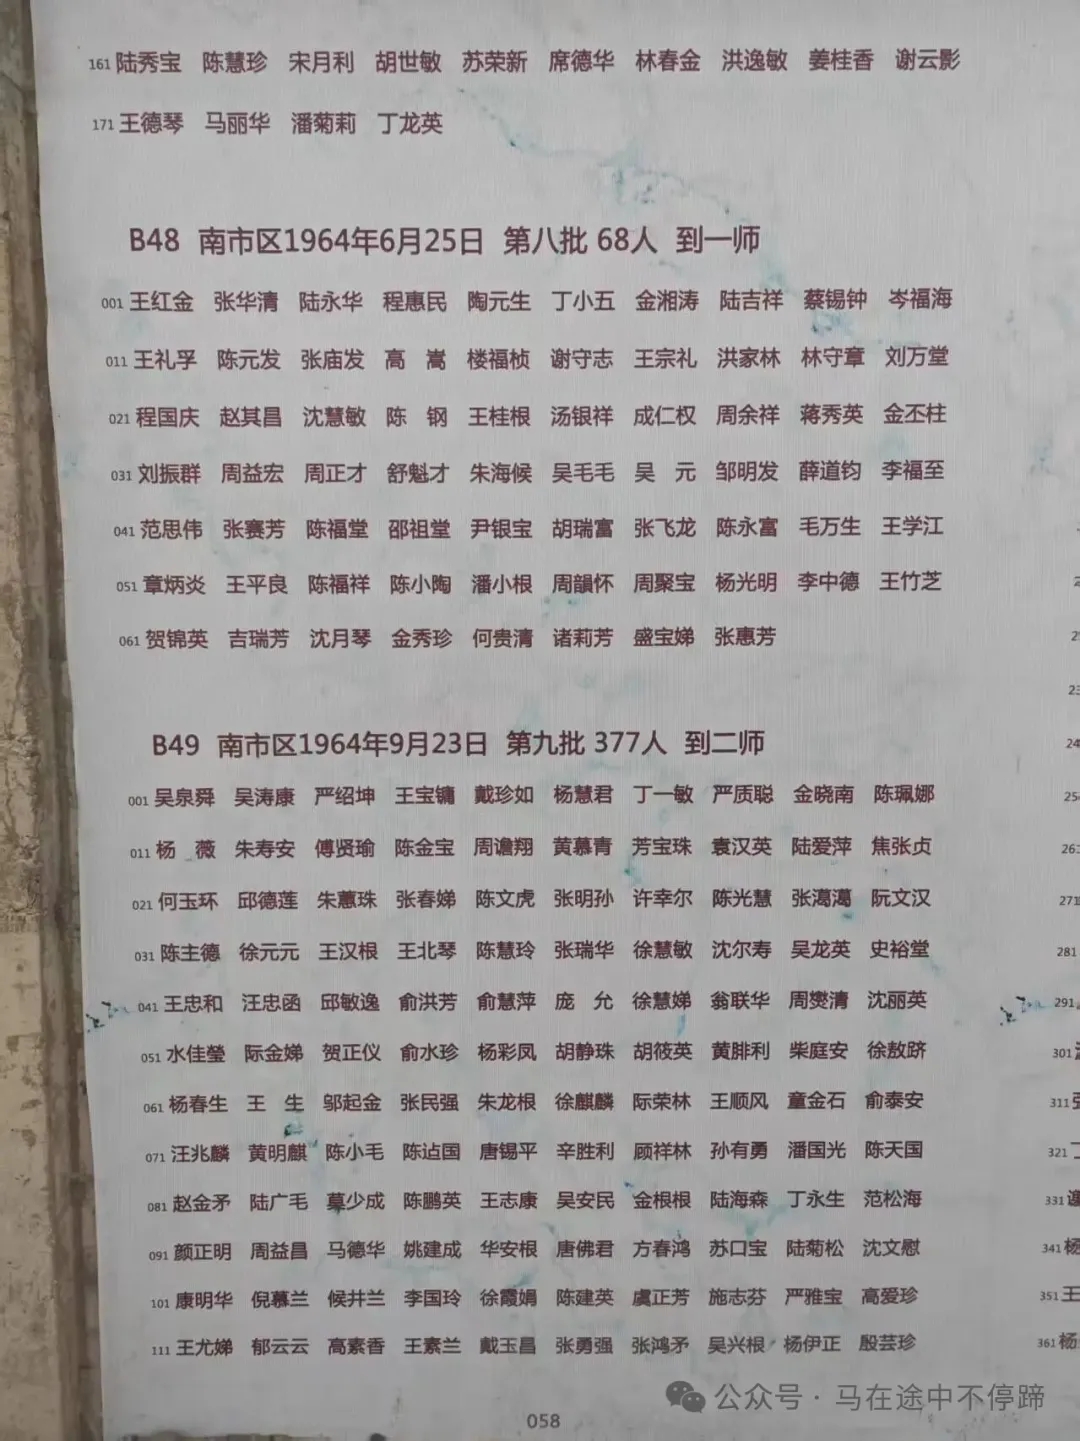 161 陆秀宝 陈慧珍 宋月利 胡世敏 苏荣新 席德华 林春金 洪逸敏 姜桂香 谢云影
171 王德琴 马丽华 潘菊莉 丁龙英
B48 南市区1964年6月25日 第八批 68人 到一师
001 王红金 张华清 陆永华 程惠民 陶元生 丁小五 金湘涛 陆吉祥 蔡锡钟 岑福海
011 王礼孚 陈元发 张庙发 高嵩 楼福桢 谢守志 王宗礼 洪家林 林守章 刘万堂
021 程国庆 赵其昌 沈慧敏 陈钢 王桂根 汤银祥 成仁权 周余祥 蒋秀英 金丕柱
031 刘振群 周益宏 周正才 舒魁才 朱海候 吴毛毛 吴元 邹明发 薛道钧 李福至
041 范思伟 张赛芳 陈福堂 邵祖堂 尹银宝 胡瑞富 张飞龙 陈永富 毛万生 王学江
051 章炳炎 王平良 陈福祥 陈小陶 潘小根 周韻怀 周聚宝 杨光明 李中德 王竹芝
061 贺锦英 吉瑞芳 沈月琴 金秀珍 何贵清 诸莉芳 盛宝娣 张惠芳
B49 南市区1964年9月23日 第九批 377人 到二师
001 吴泉舜 吴涛康 严绍坤 王宝镛 戴珍如 杨慧君 丁一敏 严质聪 金晓南 陈珮娜
011 杨薇 朱寿安 傅贤瑜 陈金宝 周谵翔 黄慕青 芳宝珠 袁汉英 陆爱萍 焦张贞
021 何玉环 邱德莲 朱蕙珠 张春娣 陈文虎 张明孙 许幸尔 陈光慧 张濭濭 阮文汉
031 陈主德 徐元元 王汉根 王北琴 陈慧玲 张瑞华 徐慧敏 沈尔寿 吴龙英 史裕堂
041 王忠和 汪忠函 邱敏逸 俞洪芳 俞慧萍 庞允 徐慧娣 翁联华 周燮清 沈丽英
051 水佳瑩 际金娣 贺正仪 俞水珍 杨彩凤 胡静珠 胡筱英 黄腓利 柴庭安 徐敖跻
061 杨春生 王生 邬起金 张民强 朱龙根 徐麒麟 际荣林 王顺风 童金石 俞泰安
071 汪兆麟 黄明麒 陈小毛 陈迠国 唐锡平 辛胜利 顾祥林 孙有勇 潘国光 陈天国
081 赵金矛 陆广毛 墓少成 陈鹏英 王志康 吴安民 金根根 陆海森 丁永生 范松海
091 颜正明 周益昌 马德华 姚建成 华安根 唐佛君 方春鸿 苏口宝 陆菊松 沈文慰
101 康明华 倪慕兰 候井兰 李国玲 徐霞娟 陈建英 虞正芳 施志芬 严雅宝 高爱珍
111 王尤娣 郁云云 高素香 王素兰 戴玉昌 张勇强 张鸿矛 吴兴根 杨伊正 殷芸珍
261
271
281
291
301
311
321
331
341 杨
351 王
361 杨
公众号 · 马在途中不停蹄
058